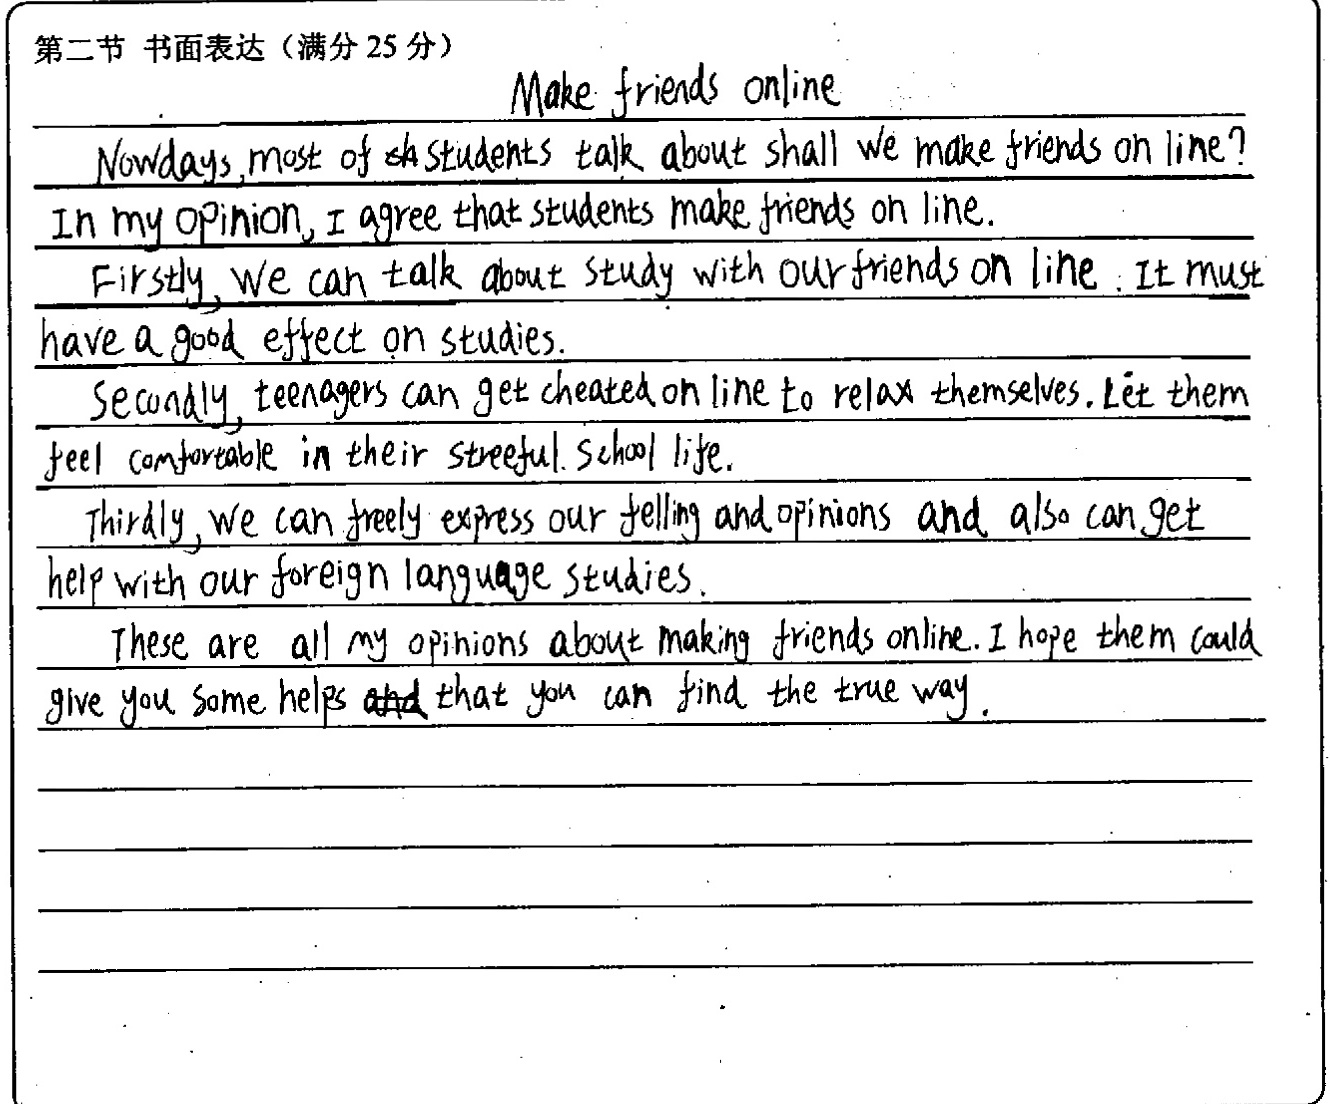 第二节 书面表达（满分 25 分）
Make friends online
Nowdays, most of students talk about shall we make friends on line?
In my opinion, I agree that students make friends on line.
Firstly, we can talk about study with our friends on line. It must
have a good effect on studies.
Secondly, teenagers can get cheated on line to relax themselves. Let them
feel comfortable in their streeful school life.
Thirdly, we can freely express our felling and opinions and also can get
help with our foreign language studies.
These are all my opinions about making friends online. I hope them could
give you some helps that you can find the true way.